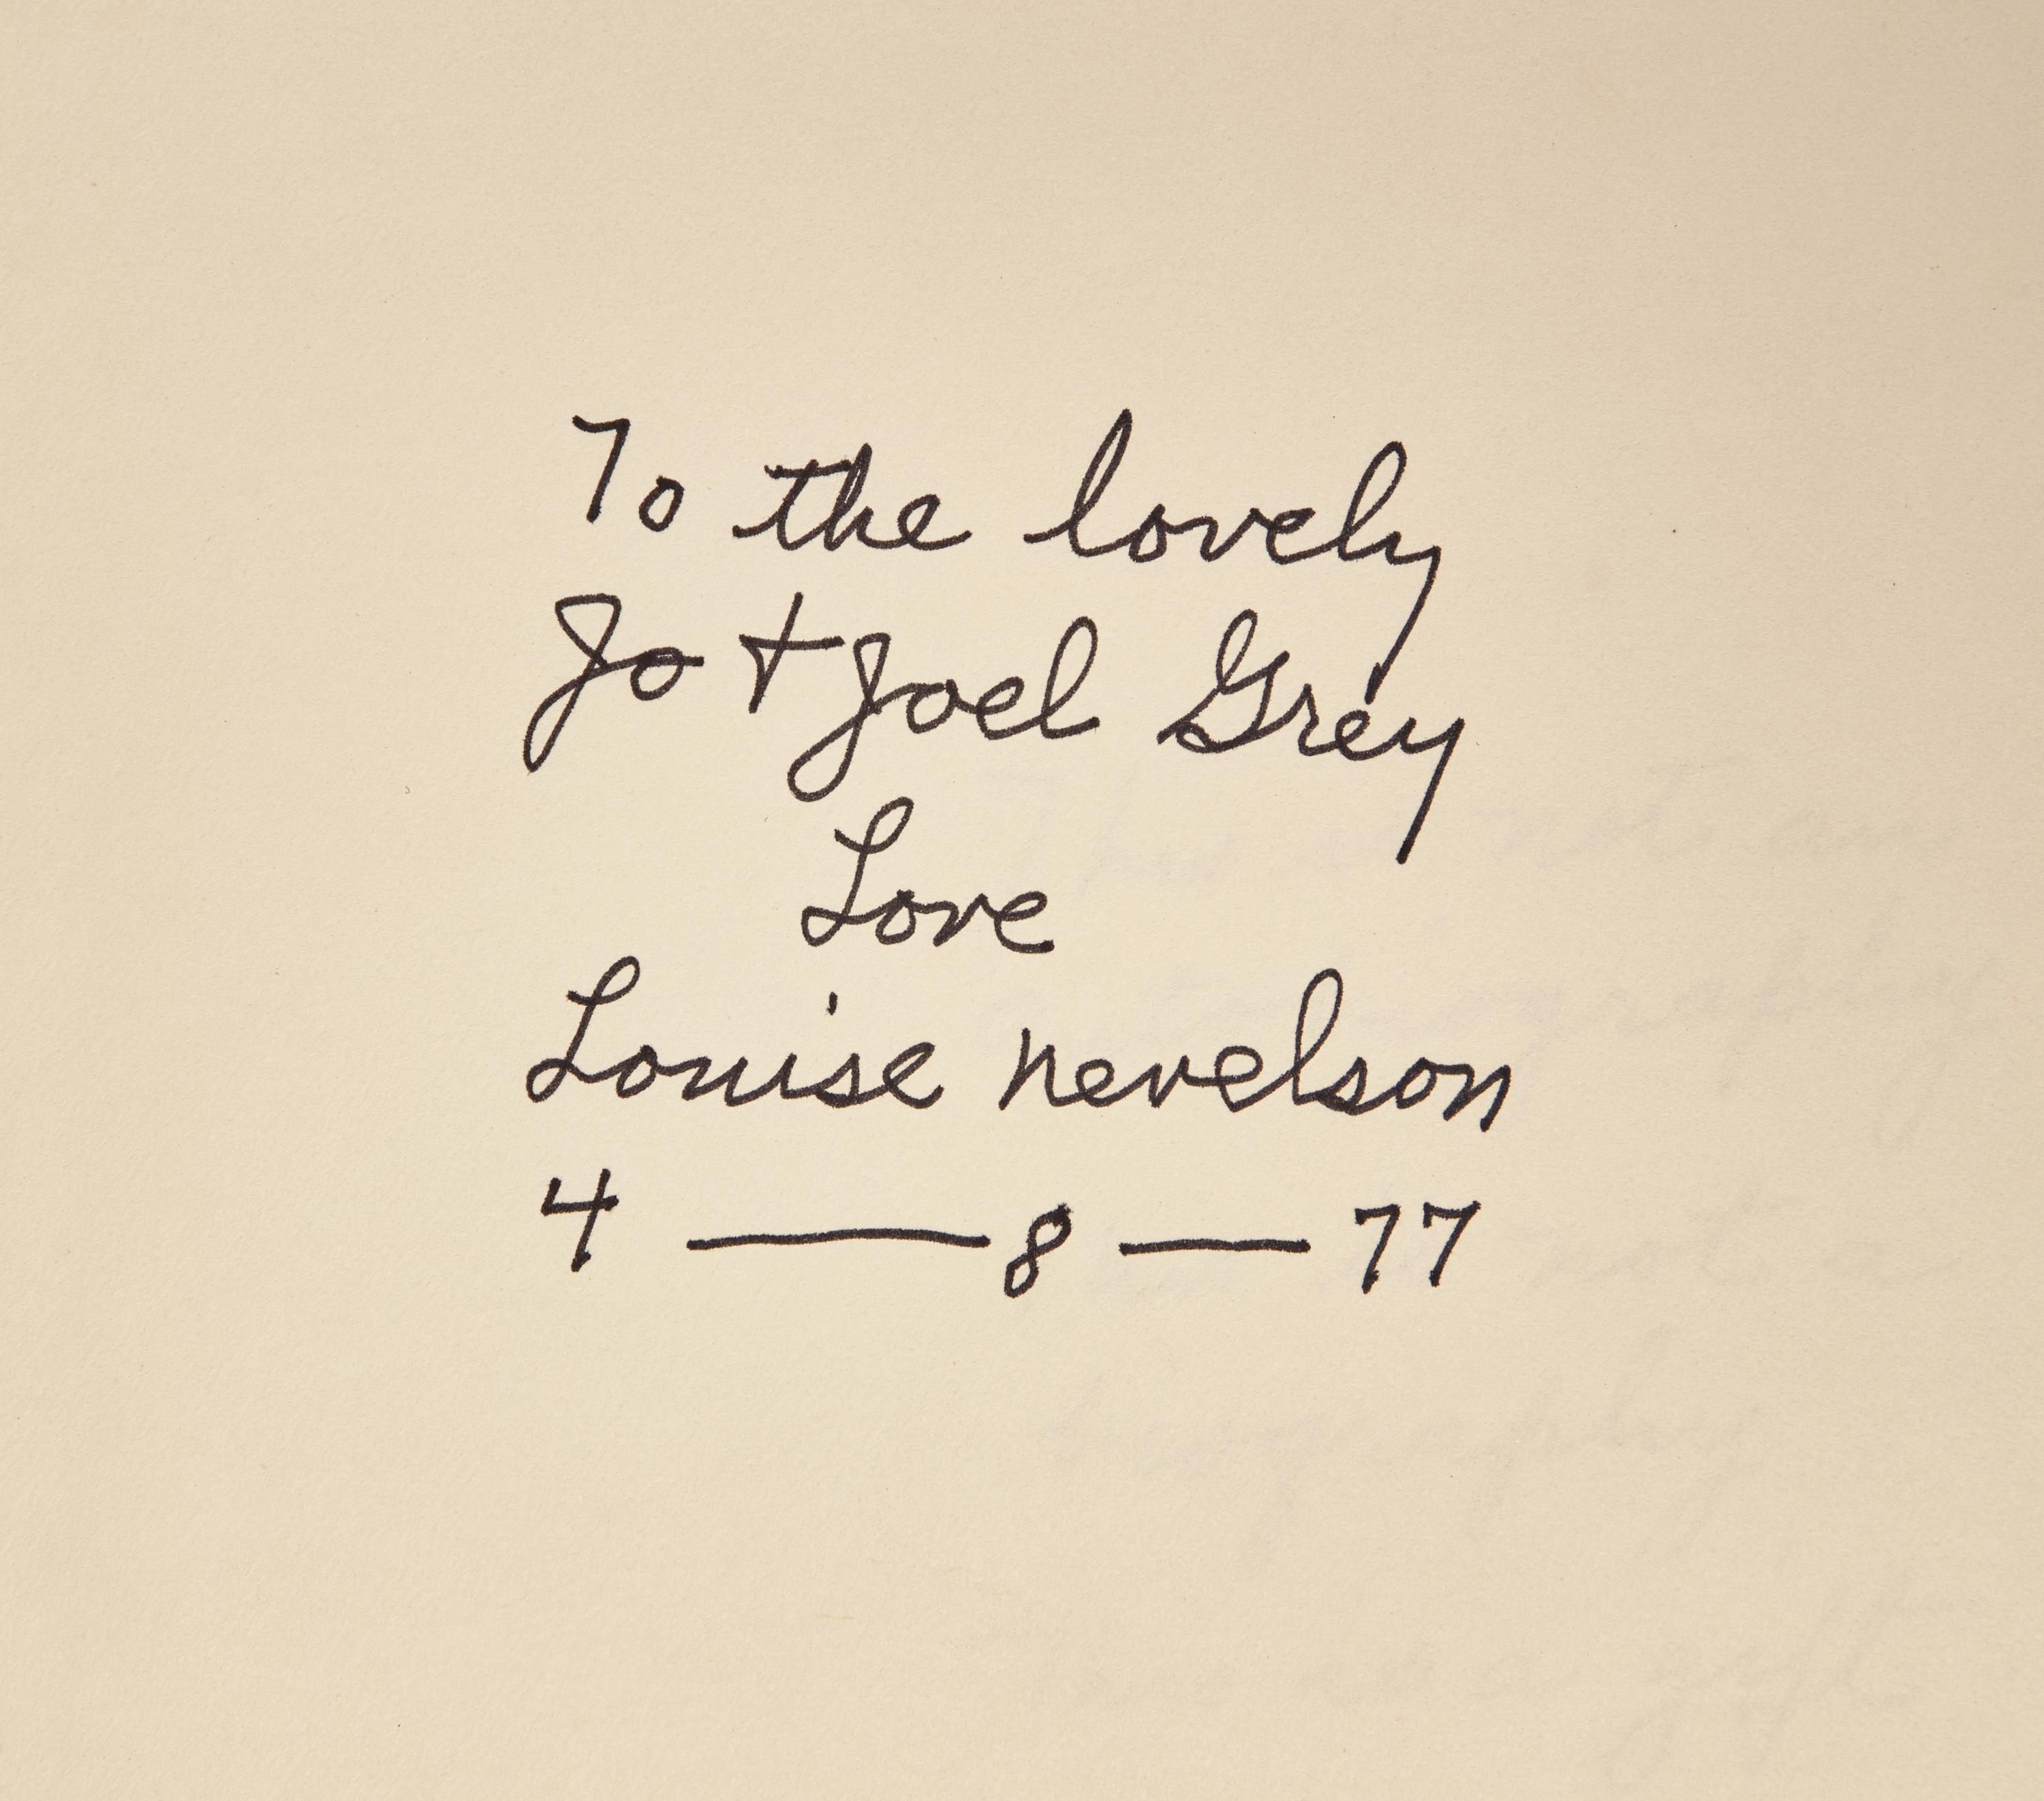 To the lovely
Jo + Joel Grey
Love
Louise nevelson
4 — 8 — 77